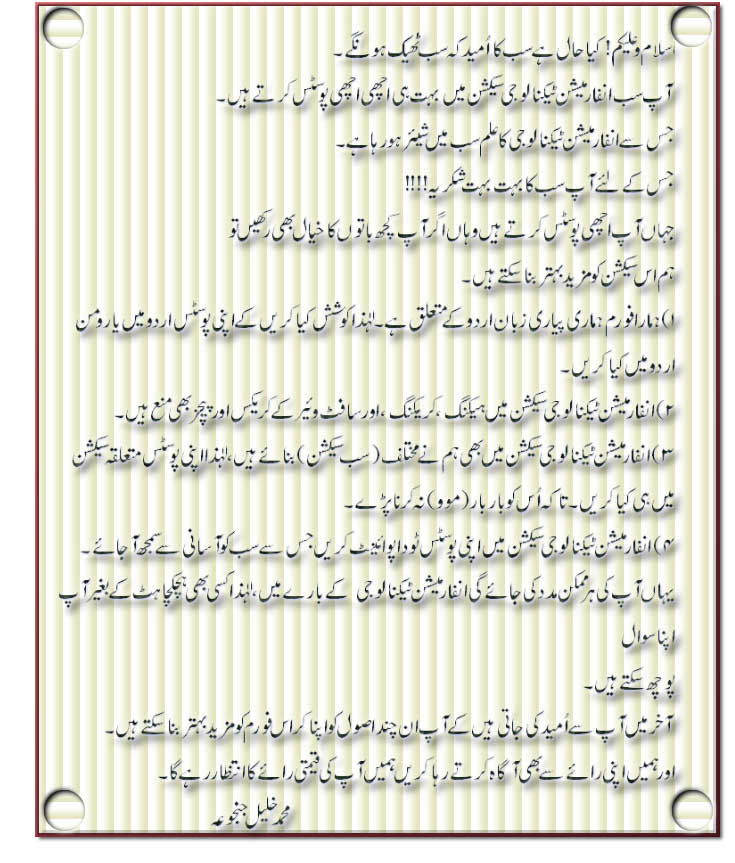 اسلام وعلیکم! کیا حال ہے سب کا اُمید کہ سب ٹھیک ہونگے۔
آپ سب انفارمیشن ٹیکنالوجی سیکشن میں بہت ہی اچھی اچھی پوسٹس کرتے ہیں۔
جس سے انفارمیشن ٹیکنالوجی کا علم سب میں شیئر ہورہا ہے۔
جس کے لئے آپ سب کا بہت بہت شکریہ!!!!
جہاں آپ اچھی پوسٹس کرتے ہیں وہاں اگر آپ کچھ باتوں کا خیال بھی رکھیں تو
ہم اس سیکشن کو مزید بہتر بنا سکتے ہیں۔
۱)ہمارا فورم ہماری پیاری زبان اردو کے متعلق ہے۔ لہٰذا کوشش کیا کریں کے اپنی پوسٹس اردو میں یا رومن
اردو میں کیا کریں۔
۲)انفارمیشن ٹیکنالوجی سیکشن میں ہیکنگ ،کریکنگ ،اور سافٹ وئیر کے کریکس اور پیچز بھی منع ہیں۔
۳)انفارمیشن ٹیکنالوجی سیکشن میں بھی ہم نے مختلف (سب سیکشن) بنائے ہیں،لہٰذا اپنی پوسٹس متعلقہ سیکشن
میں ہی کیا کریں۔ تاکہ اُس کو بار بار (موو) نہ کرنا پڑے۔
۴) انفارمیشن ٹیکنالوجی سیکشن میں اپنی پوسٹس ٹو دا پوائینٹ کریں جس سے سب کو آسانی سے سمجھ آ جائے۔
یہاں آپ کی ہر ممکن مدد کی جائے گی انفارمیشن ٹیکنالوجی کے بارے میں،لہٰذا کسی بھی ہچکچاہٹ کے بغیر آپ
اپنا سوال
پوچھ سکتے ہیں۔
آخر میں آپ سے اُمید کی جاتی ہیں کے آپ ان چند اصول کو اپنا کر اس فورم کو مزید بہتر بنا سکتے ہیں۔
اور ہمیں اپنی رائے سے بھی آگاہ کرتے رہا کریں ہمیں آپ کی قیمتی رائے کا انتظار رہے گا۔
محمد خلیل جنجوعہ